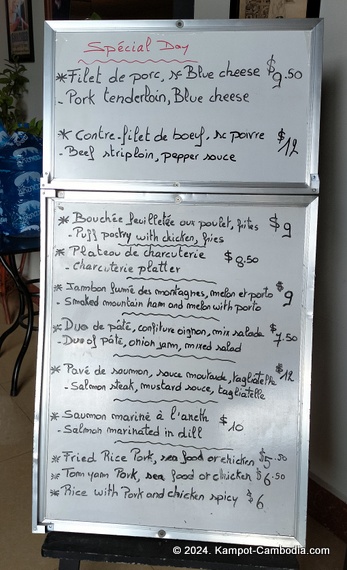 Spécial Day
* Filet de porc, sc Blue cheese $9.50
- Pork tenderloin, Blue cheese
* Contre-filet de boeuf, sc poivre $12
- Beef striploin, pepper sauce
* Bouchée feuilletée aux poulet, frites $9
- Puff pastry with chicken, fries
* Plateau de charcuterie $8.50
- charcuterie platter
* Jambon fumé des montagnes, melon et porto $9
- Smoked mountain ham and melon with porto
* Duo de pâté, confiture oignon, mix salade $7.50
- Duo of pâté, onion jam, mixed salad
* Pavé de saumon, sauce moutarde, tagliatelle $12
- Salmon steak, mustard sauce, tagliatelle
* Saumon mariné à l'aneth $10
- Salmon marinated in dill
* Fried Rice Pork, sea food or chicken $5.50
* Tom yam Pork, sea food or chicken $6.50
* Rice with Pork and chicken spicy $6
© 2024. Kampot-Cambodia.com